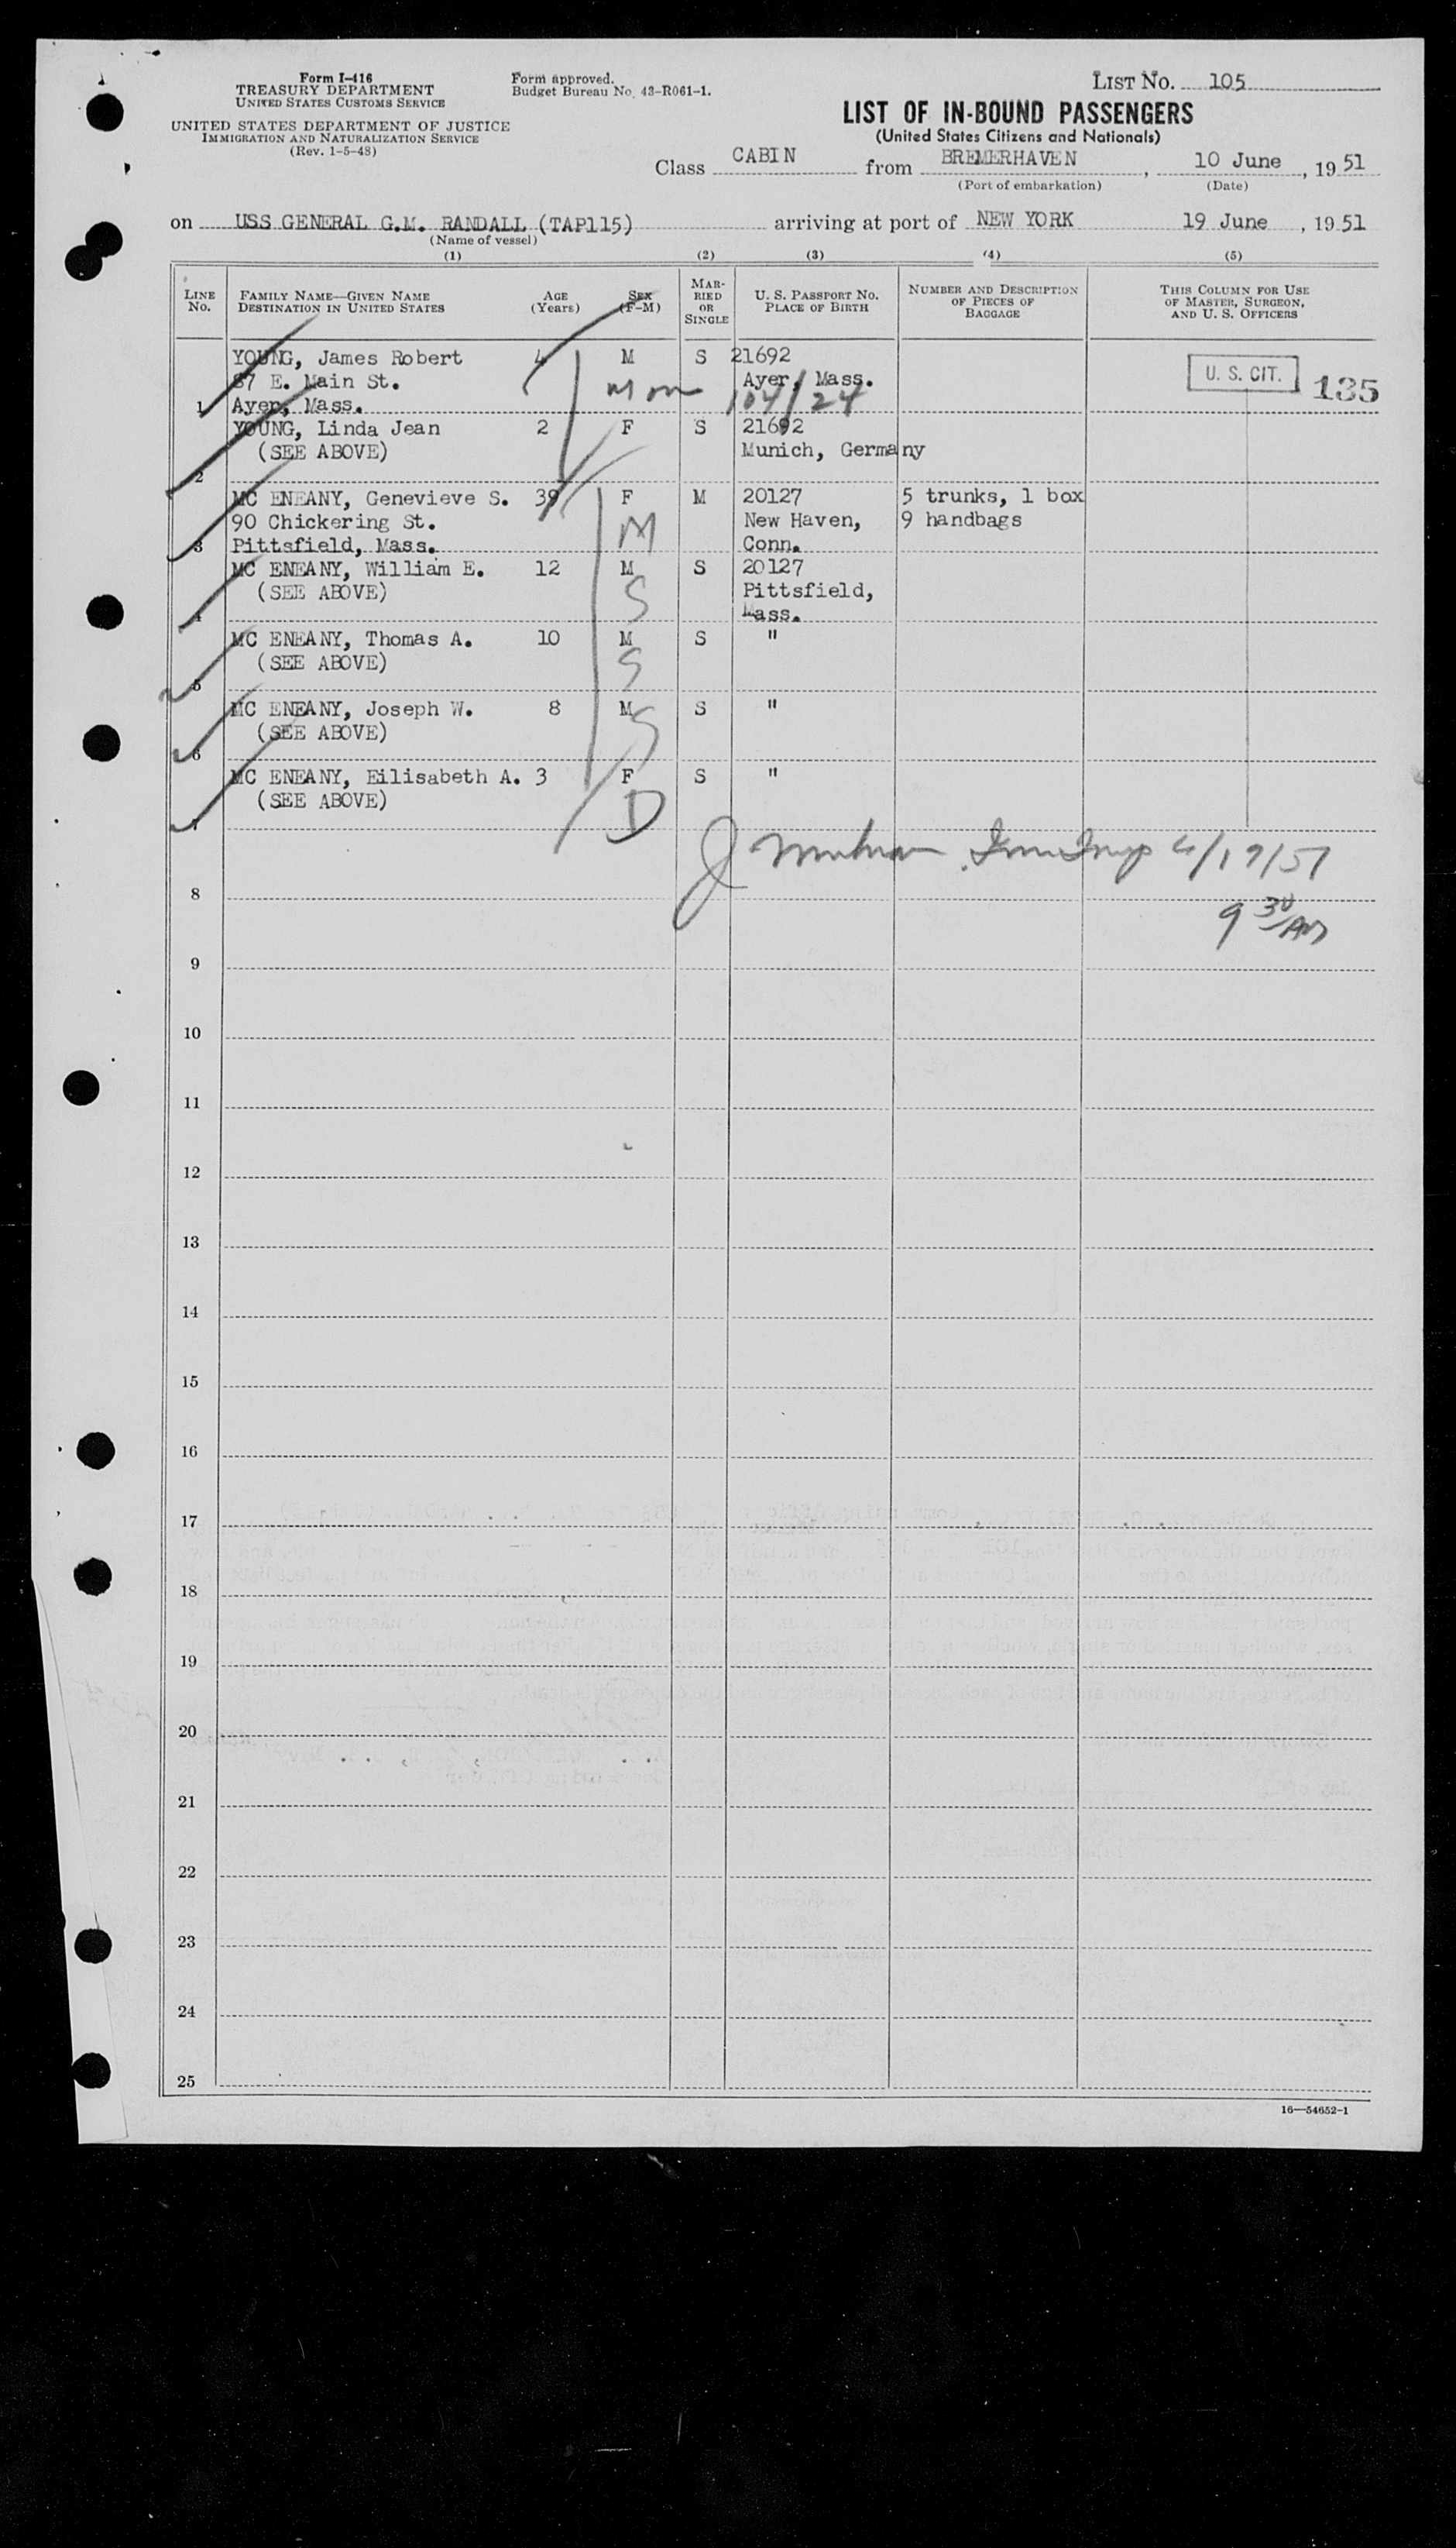 Form I-416
TREASURY DEPARTMENT
UNITED STATES CUSTOMS SERVICE
UNITED STATES DEPARTMENT OF JUSTICE
IMMIGRATION AND NATURALIZATION SERVICE
(Rev. 1-5-48)
Form approved.
Budget Bureau No. 43-R061-1.
LIST NO. 105
LIST OF IN-BOUND PASSENGERS
(United States Citizens and Nationals)
Class CABIN from BREMERHAVEN, 10 June, 1951
(Port of embarkation) (Date)
on USS GENERAL G.M. RANDALL (TAP115) arriving at port of NEW YORK 19 June, 1951
(Name of vessel)
(1) (2) (3) (4) (5)
LINE NO.
FAMILY NAME—GIVEN NAME
DESTINATION IN UNITED STATES
AGE (Years)
SEX (F-M)
MARRIED OR SINGLE
U. S. PASSPORT NO.
PLACE OF BIRTH
NUMBER AND DESCRIPTION OF PIECES OF BAGGAGE
THIS COLUMN FOR USE OF MASTER, SURGEON, AND U. S. OFFICERS
YOUNG, James Robert 4 M S 21692
87 E. Main St. Ayer, Mass. U. S. CIT. 135
1 Ayer, Mass. 104/24
YOUNG, Linda Jean 2 F S 21692
(SEE ABOVE) Munich, Germany
2
MC ENEANY, Genevieve S. 39 F M 20127 5 trunks, 1 box
90 Chickering St. M New Haven, 9 handbags
3 Pittsfield, Mass. Conn.
MC ENEANY, William E. 12 M S 20127
(SEE ABOVE) S Pittsfield,
4 Mass.
MC ENEANY, Thomas A. 10 M S "
(SEE ABOVE) S
5
MC ENEANY, Joseph W. 8 M S "
(SEE ABOVE) S
6
MC ENEANY, Eilisabeth A. 3 F S "
(SEE ABOVE) D
7
J 6/19/51
8
9 30 AM
9
10
11
12
13
14
15
16
17
18
19
20
21
22
23
24
25
16—54652-1